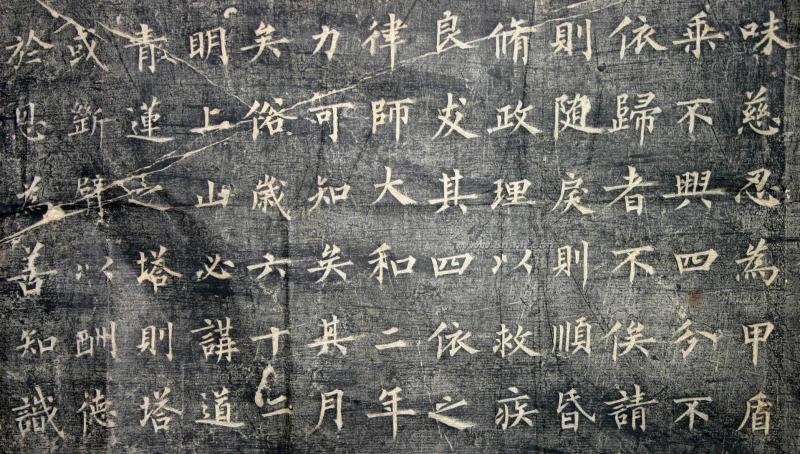 味慈忍為甲盾
乘不興四分不
依歸者不俟請
則随戾則順昏
脩政理以救疾
良犮其四依之
律師大和二年
力可知矣其月
矣俗歲六十二
明上山必講道
青蓮之塔則塔
或斷臂以酬德
於思為善知識